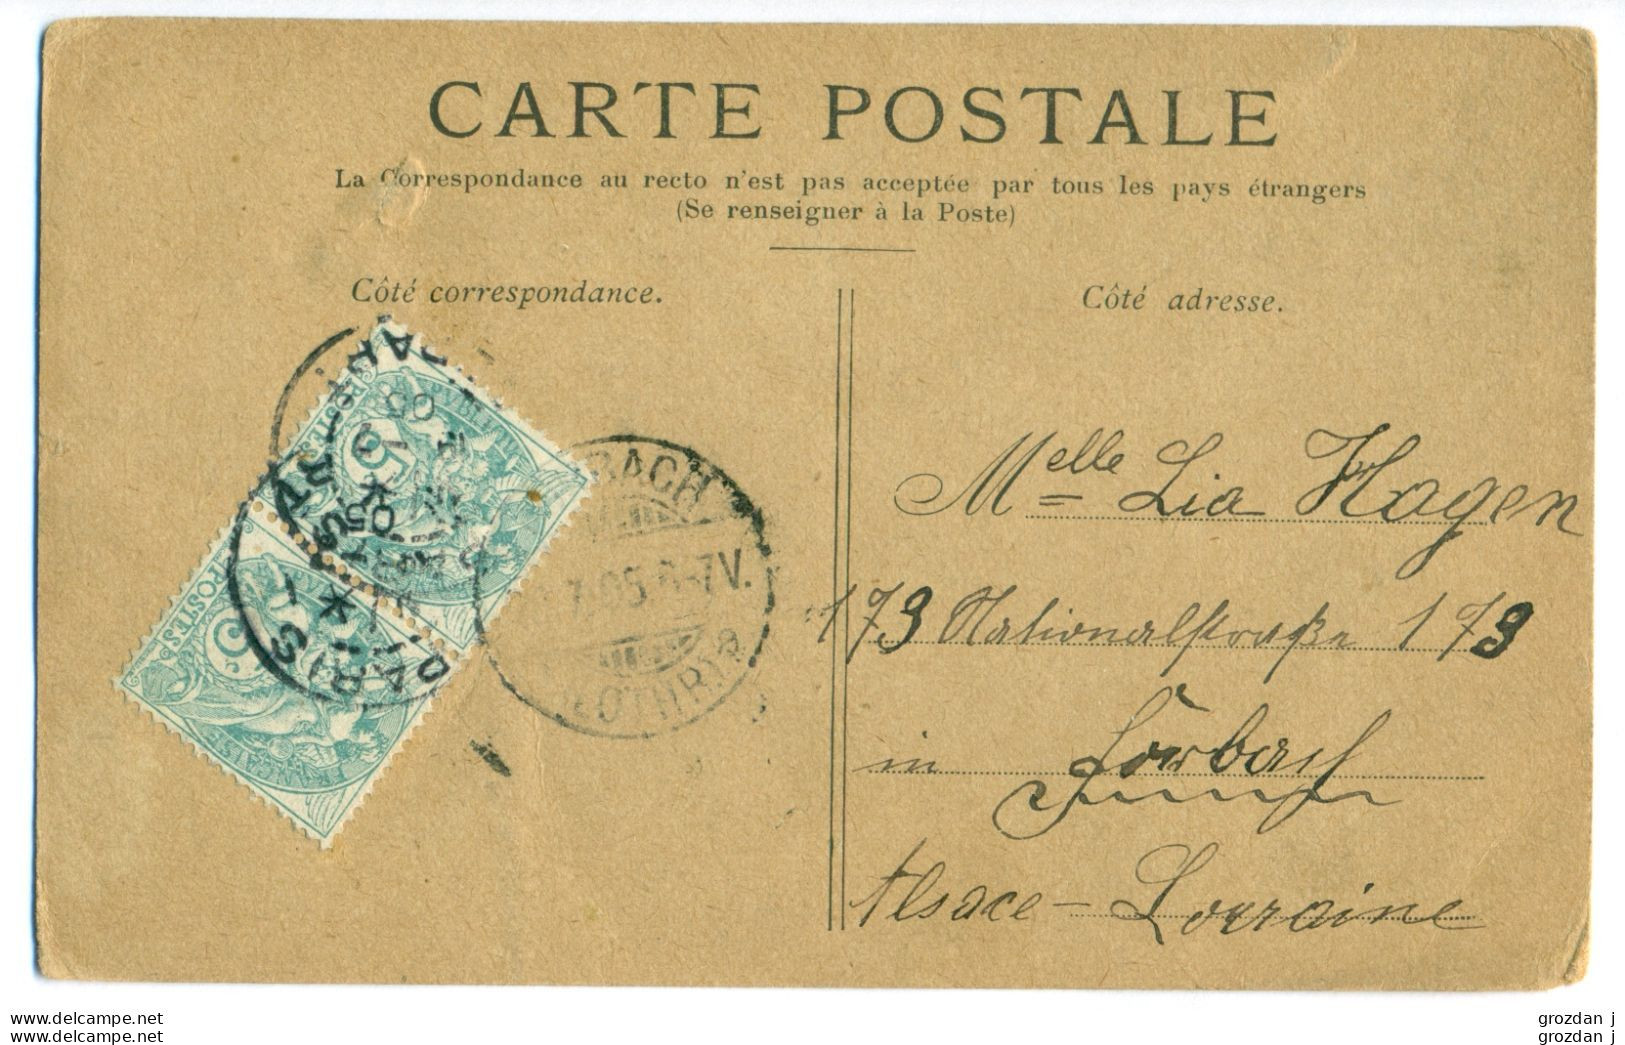 CARTE POSTALE
La Correspondance au recto n'est pas acceptée par tous les pays étrangers
(Se renseigner à la Poste)
Côté correspondance.
Côté adresse.
Melle Lia Hagen
173 Nationalstraße 173
in Forbach
Alsace-Lorraine
POSTES
5
RACH
7.05.6-7V.
LOTHR
PARIS
05
POSTES
5
FRANÇAISE
www.delcampe.net
www.delcampe.net
grozdan j
grozdan j